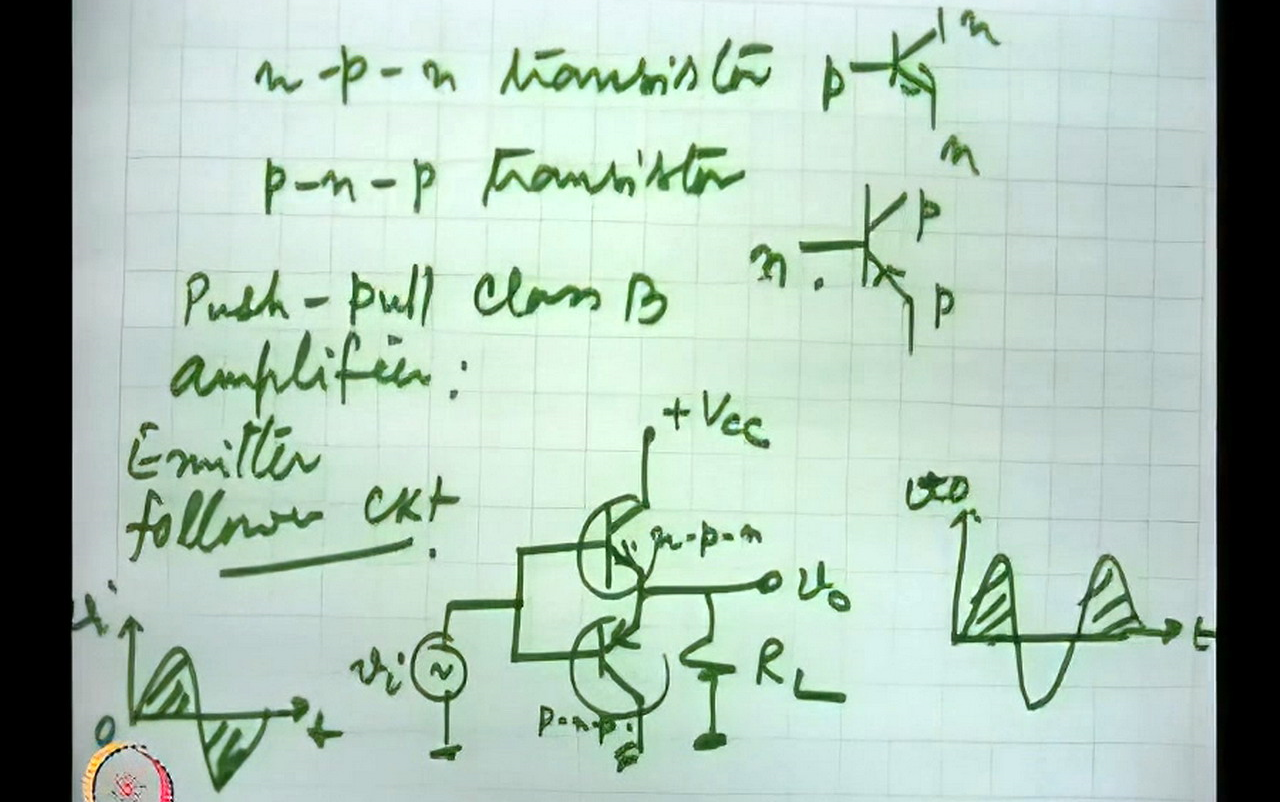 n-p-n transistor
p
n
n
p-n-p transistor
n
p
p
Push-pull class B
amplifier:
Emitter
follower ckt.
+Vcc
n-p-n
vo
vi
p-n-p
RL
vi
0
t
vo
t